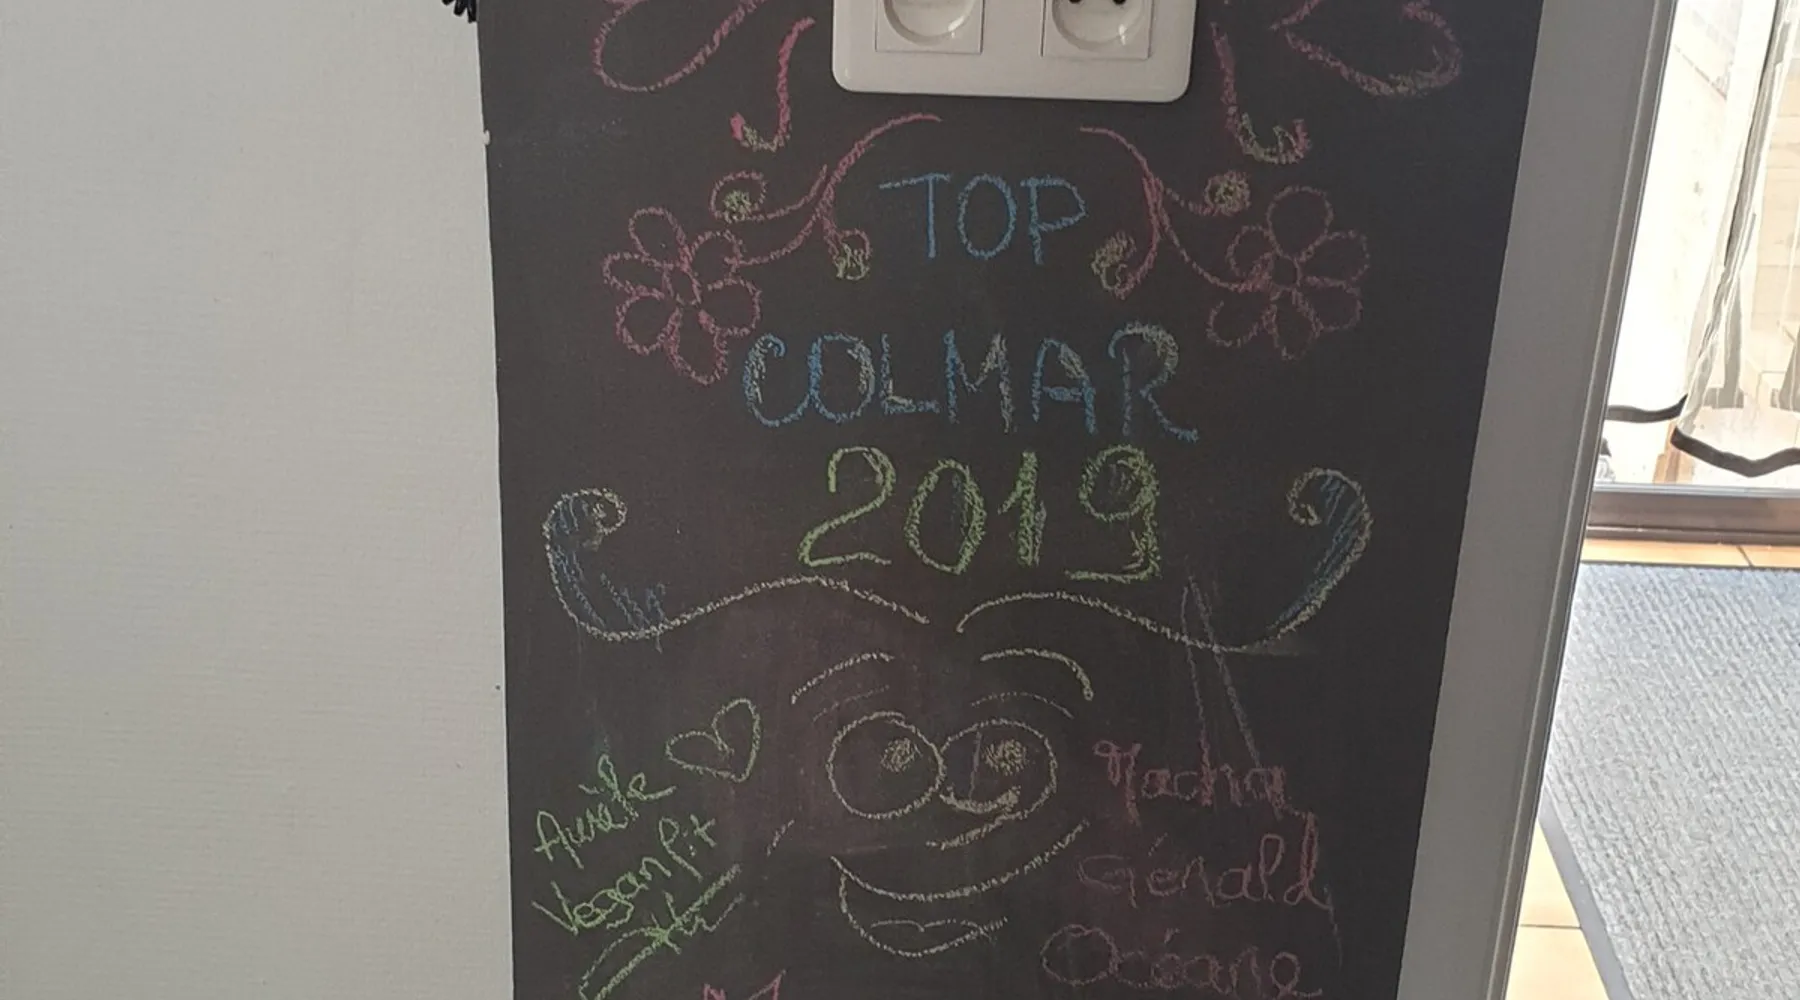 TOP
COLMAR
2019
Aurèle
Veganfit
Macha
Gérald
Océane